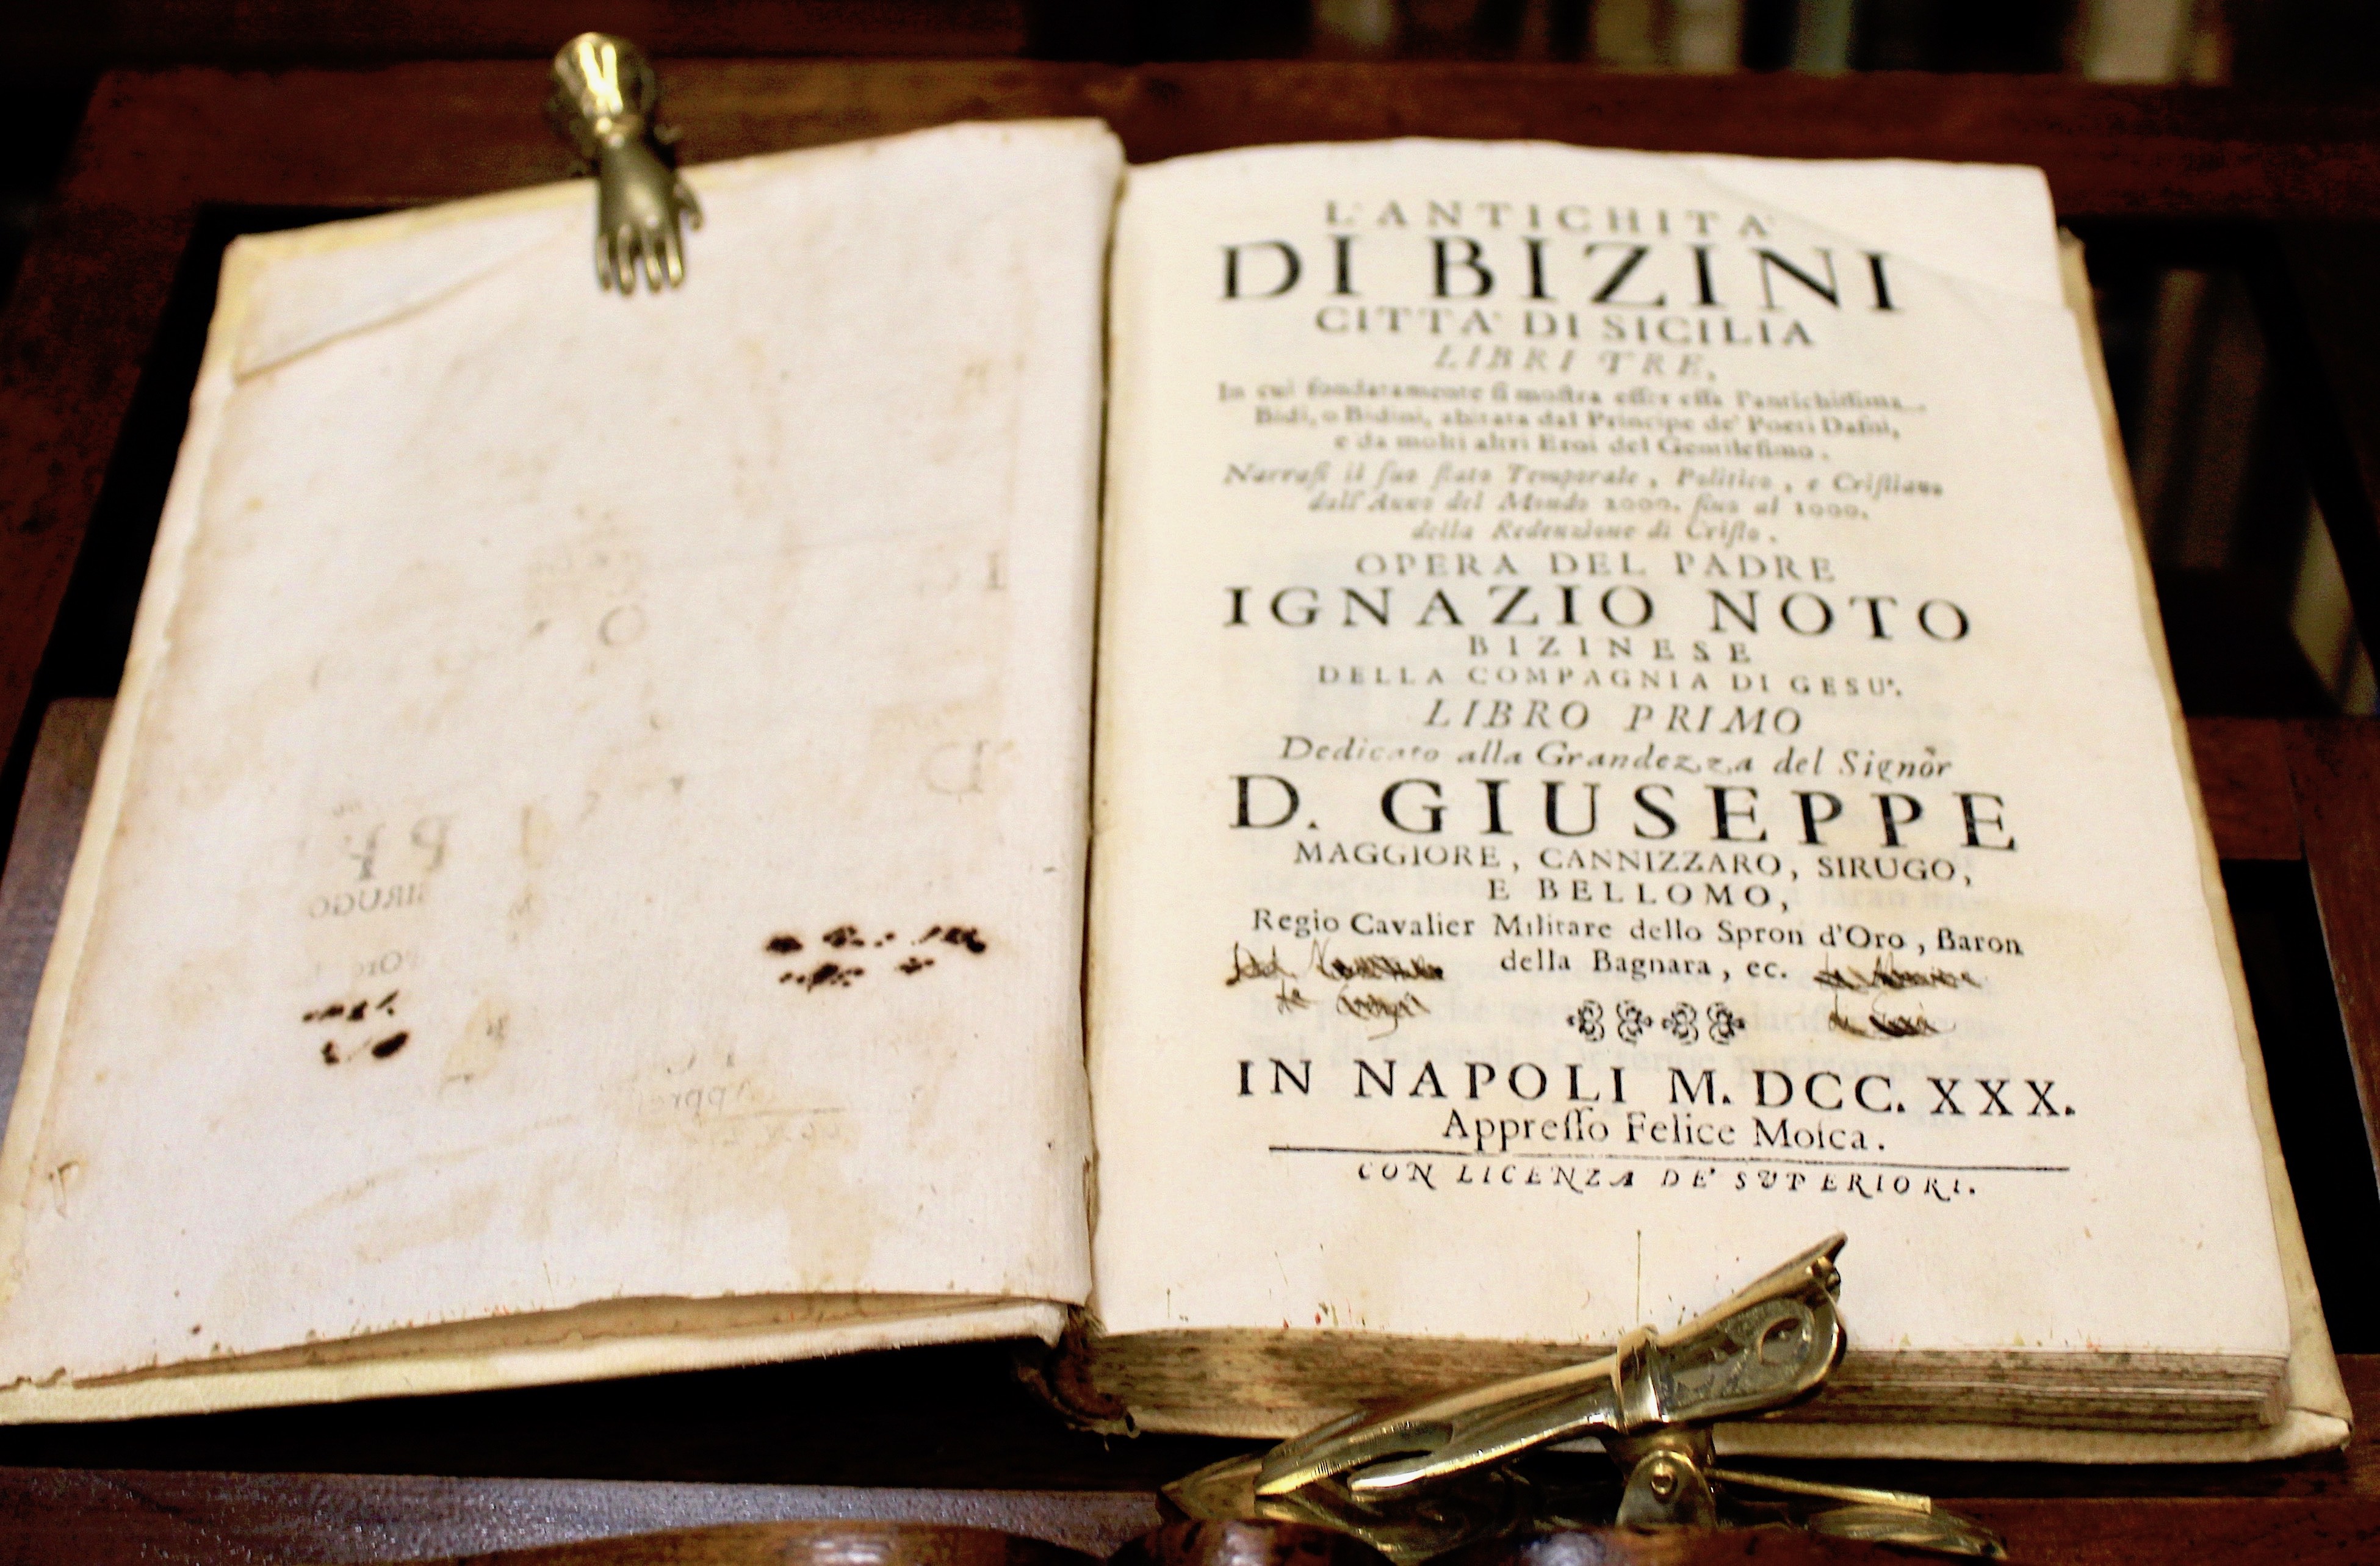 L'ANTICHITA'
DI BIZINI
CITTA' DI SICILIA
LIBRI TRE,
In cui fondatamente si mostra esser essa l'antichissima
Bidi, o Bidini, abitata dal Principe de' Poeti Dafni,
e da molti altri Eroi del Gentilesimo.
Narrasi il suo stato Temporale, Politico, e Cristiano
dall'Anno del Mondo 2000. fino al 1000.
della Redenzione di Cristo.
OPERA DEL PADRE
IGNAZIO NOTO
BIZINESE
DELLA COMPAGNIA DI GESU'.
LIBRO PRIMO
Dedicato alla Grandezza del Signor
D. GIUSEPPE
MAGGIORE, CANNIZZARO, SIRUGO,
E BELLOMO,
Regio Cavalier Militare dello Spron d'Oro, Baron
della Bagnara, ec.
IN NAPOLI M. DCC. XXX.
Appresso Felice Mosca.
CON LICENZA DE' SUPERIORI.